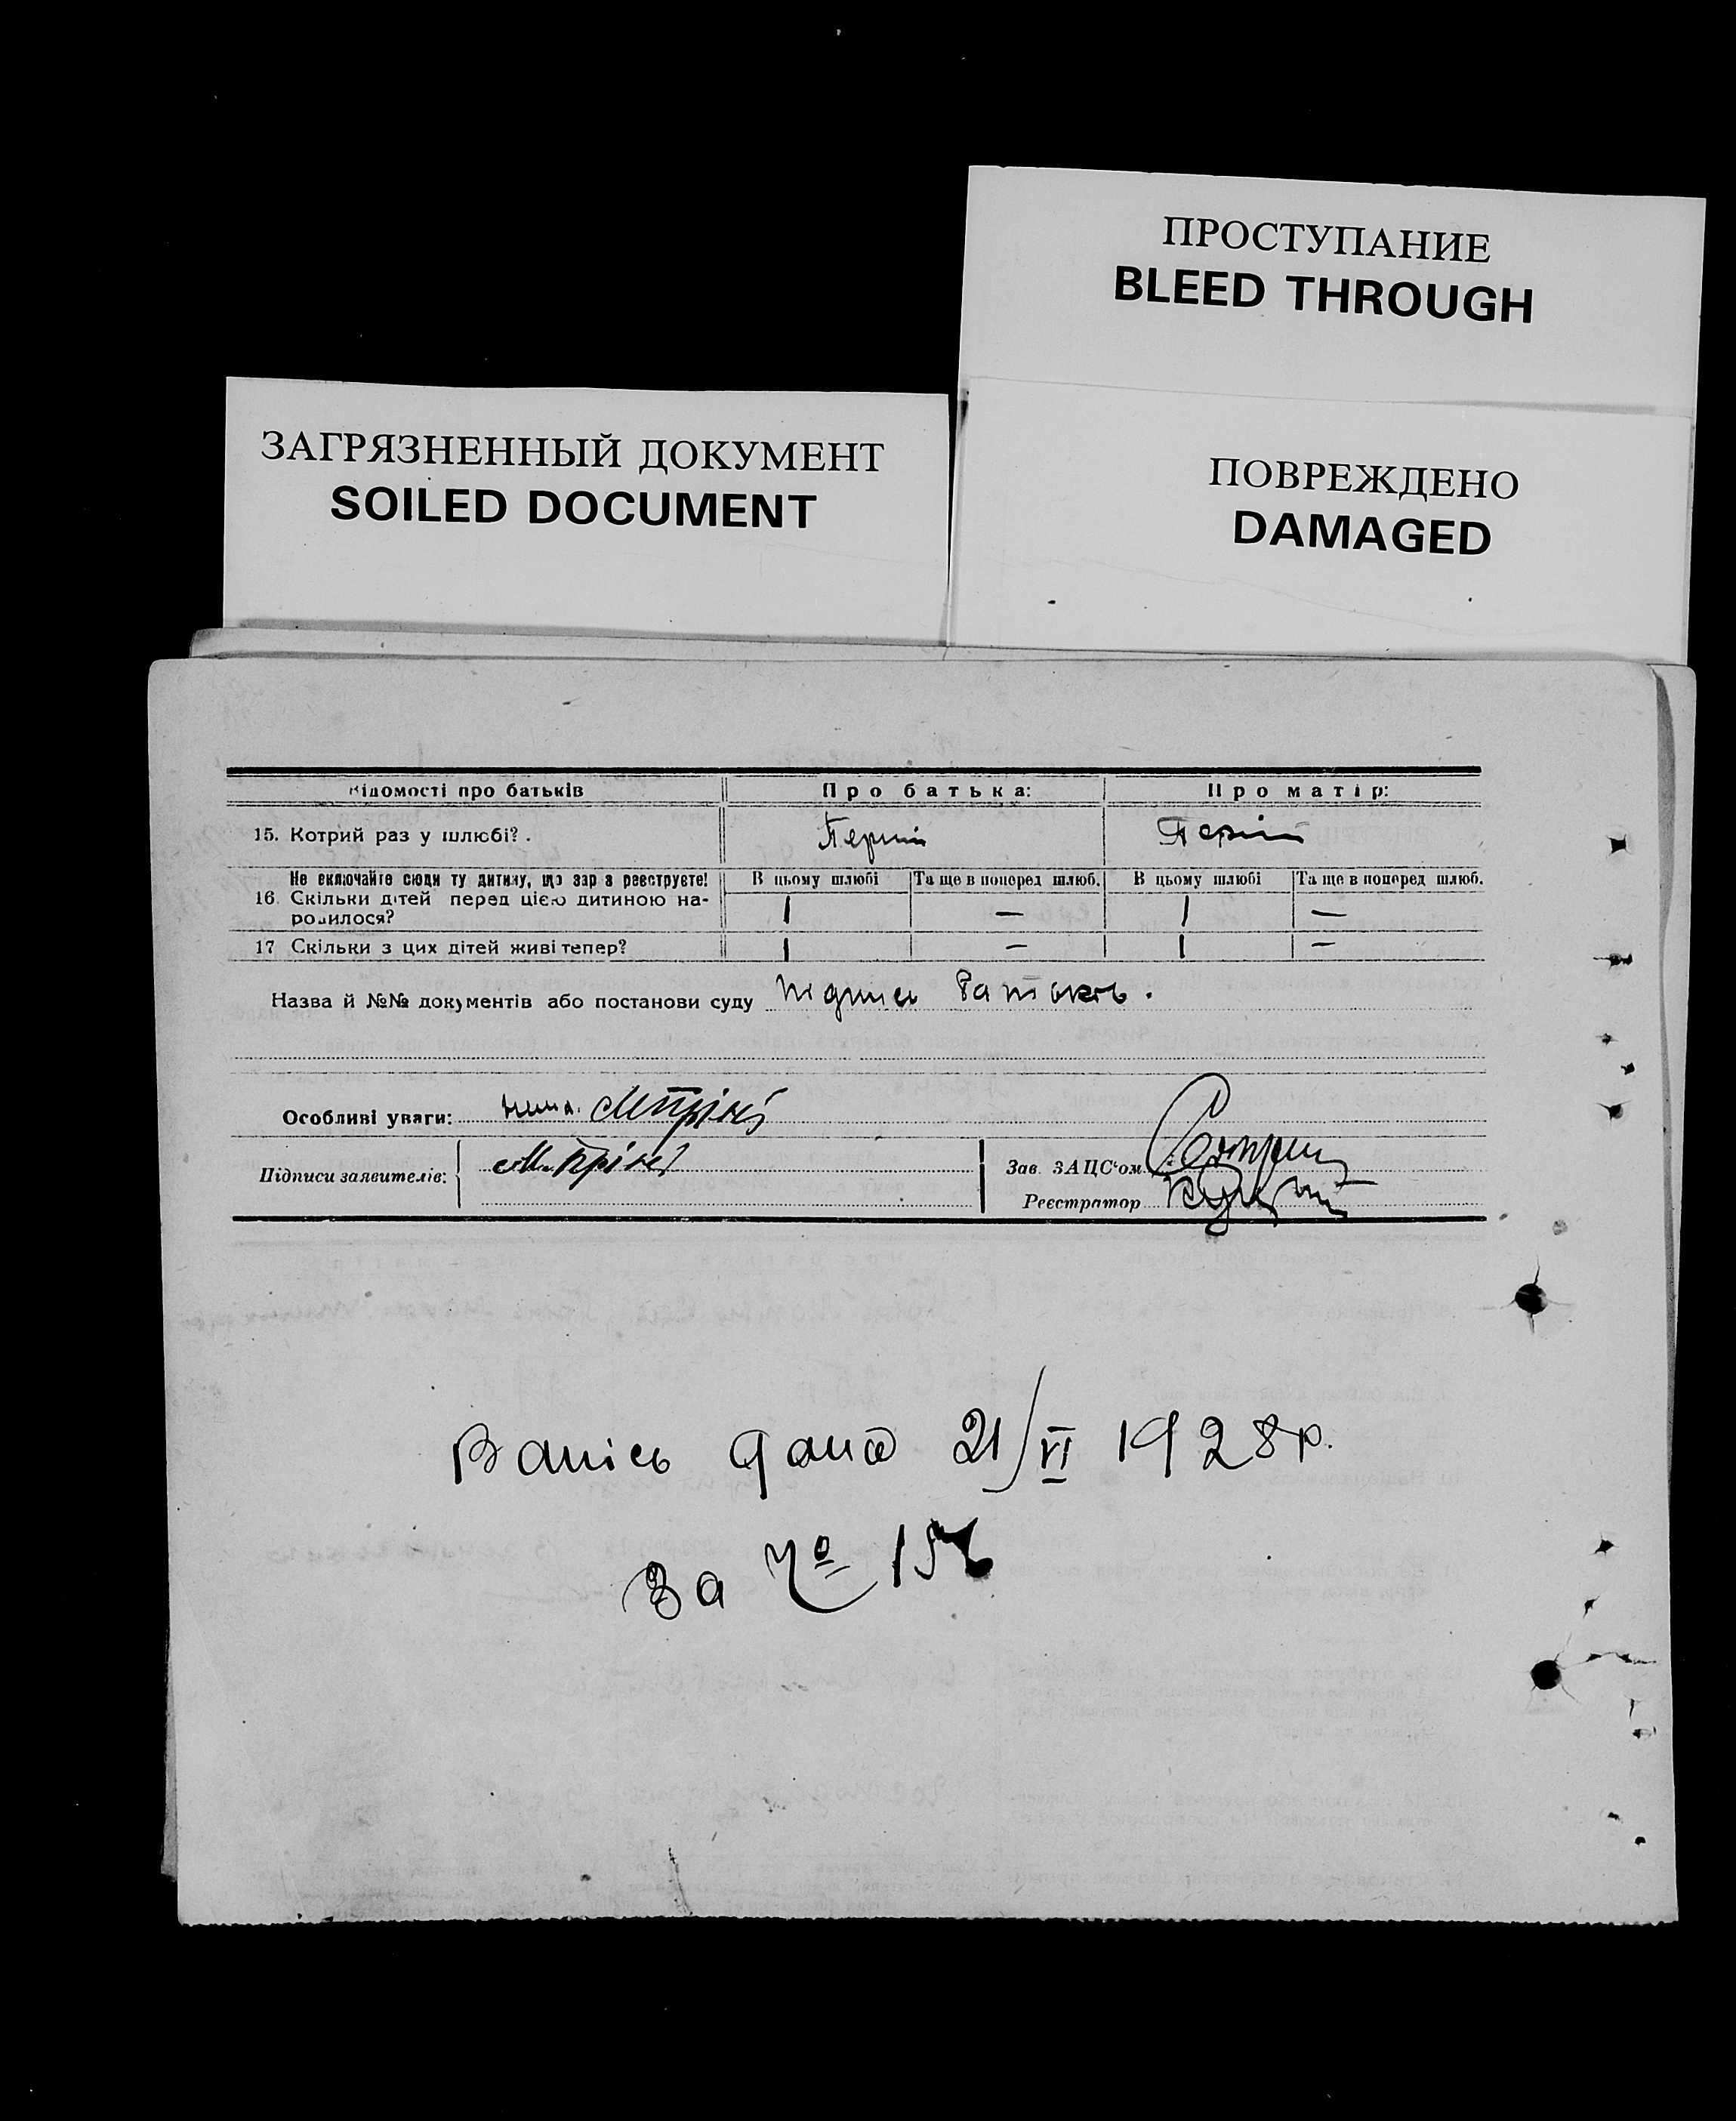 ПРОСТУПАНИЕ
BLEED THROUGH
ЗАГРЯЗНЕННЫЙ ДОКУМЕНТ
SOILED DOCUMENT
ПОВРЕЖДЕНО
DAMAGED
Відомості про батьків Про батька: Про матір:
15. Котрий раз у шлюбі? . Перший Перший
Не включайте сюди ту дитину, що зараз реєструєте! В цьому шлюбі Та ще в поперед шлюб. В цьому шлюбі Та ще в поперед шлюб.
16. Скільки дітей перед цією дитиною на- 1 — 1 —
родилося?
17 Скільки з цих дітей живі тепер? 1 — 1 —
Назва й №№ документів або постанови суду
Особливі уваги:
Підписи заявителів: Зав. ЗАЦС'ом
Реєстратор
Запісь дана 21/VI 1928 р.
За № 15